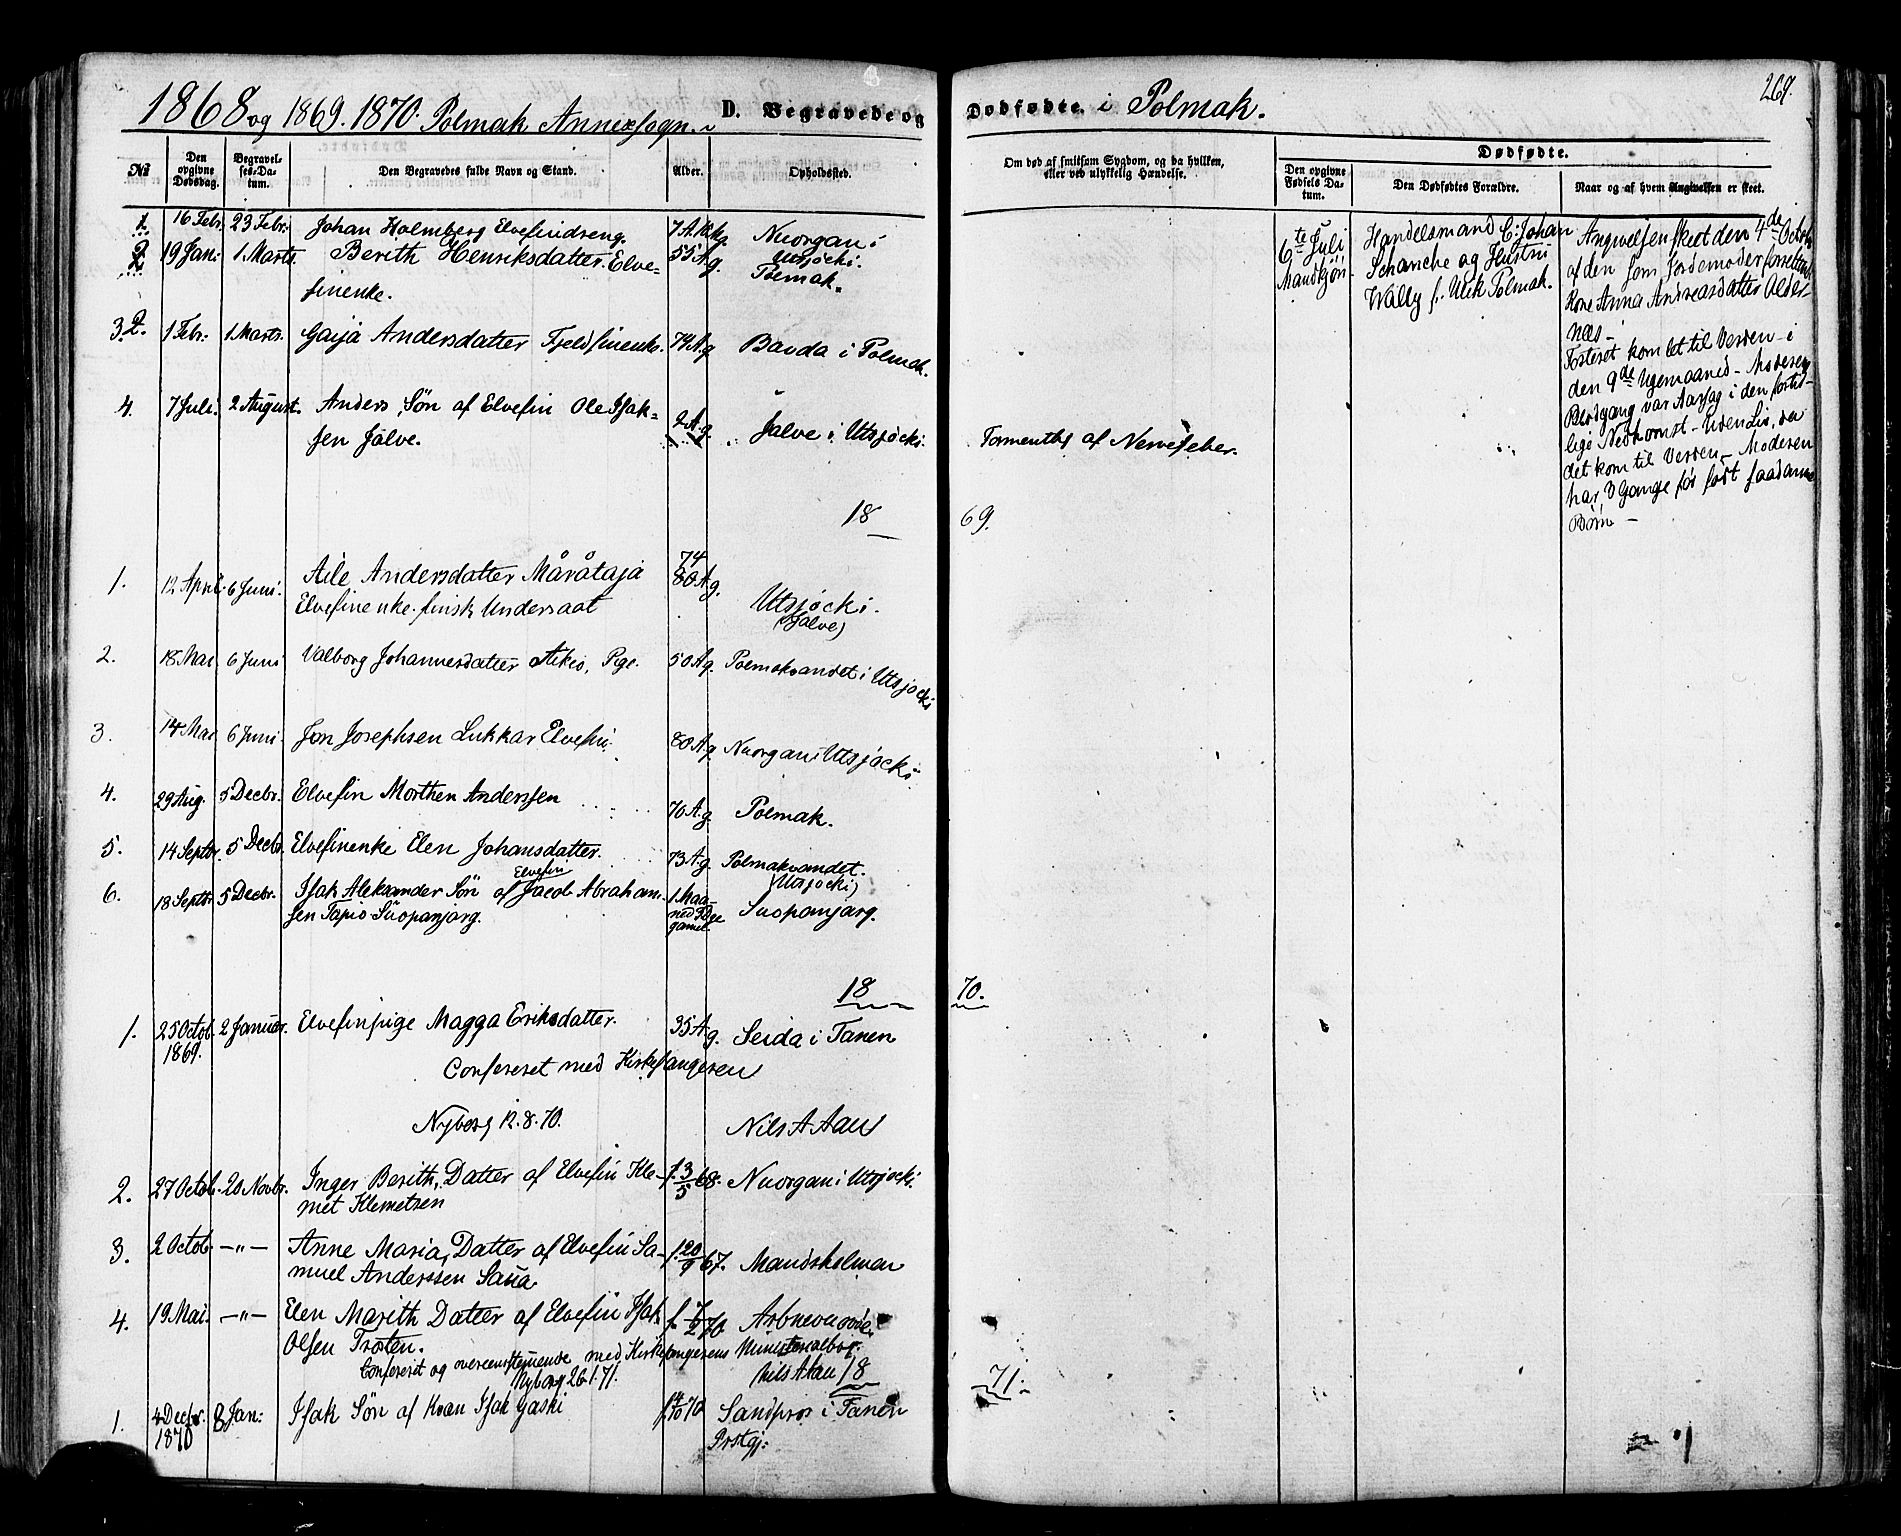 1868 og 1869. 1870. Polmak Annexsogn. D. Begravede og Dødfødte. i Polmak. 269.
No
Den opgivne Dødsdag.
Begravelses-Datum.
Den Begravedes fulde Navn og Stand.
Alder.
Opholdssted.
Om død af smitsom Sygdom, og da hvilken,
eller ved ulykkelig Hændelse.
Dødfødte.
Den opgivne Fødsels Datum.
Den Dødfødtes Forældre.
Naar og af hvem Angivelsen er skeet.
1. 16 Febr. 23 Febr. Johan Holmberg Elvefindreng. Nuorgan i
Utsjocki.
2. 19 Jan: 1 Marts Berith Henriksdatter. Elve-
finenke. 55 A.g. Polmak.
3. 2. 1 Febr: 1 Marts. Gaija Andersdatter Fjeldfinenke. 74 A.g Bavda i Polmak.
4. 7 Juli. 2 August. Anders, Søn af Elvefin Ole Isak-
sen Jalve. 2 A.g. Jalve i Utsjocki. af Nervefeber.
6te Juli
Mandkjøn
Handelsmand C: Johan
Schanche og Hustru
Wally f. Uck Polmak.
Angivelsen skeet den 4de Octobr
af den som Jordemoder
Kone Anna Andreasdatter Alder-
næs -
Fosteret kom let til Verden - i
den 9de Ugemaaned - Moderen
var Aarsag i den fortid-
lige Nedkomst - Uden Liv, da
det kom til Verden - Moderen
har 3 Gange før født saadanne
Børn -
18 69.
1. 12 April. 6 Juni. Aile Andersdatter Måråtaja 74
80 A.g.
Elvefinenke. finsk Undersaat Utsjocki.
(Jalve)
2. 18 Mai 6 Juni Valborg Johannesdatter Aikio, Pige. 50 A.g. Polmakvandet i Utsjocki
3. 14 Mai 6 Juni. Jon Josephsen Lukkar Elvefin. 80 A.g. Nuorgan i Utsjocki
4. 29 Aug. 5 Decbr. Elvefin Morthen Anderssen 70 A.g. Polmak.
5. 14 Septbr. 5 Decbr. Elvefinenke Elen Johansdatter. 73 A.g. Polmakvandet.
(Utsjocki)
6. 18 Septbr. 5 Decbr. Isak Aleksander Søn af Elvefin Jacob Abraham-
sen Tapio Suopanjarg. 1 Maa-
ned
gamel. Suopanjarg.
18 70.
1. 25 Octob.
1869. 2 Januar. Elvefinpige Magga Eriksdatter. 35 A.g. Seida i Tanen
Confereret med Kirkesangeren
Nyborg 12.8.70. Nils A Aau
2. 27 Octob. 20 Novbr. Inger Berith, Datter af Elvefin Kle-
met Klemetsen f. 3/5 68. Nuorgan i Utsjocki.
3. 2 Octob. —"— Anne Maria, Datter af Elvefin Sa-
muel Anderssen Saua f. 20/9 67. Mandsholmen
4. 19 Mai. —"— Elen Marith Datter af Elvefin Isak
Olsen Trosten. f. 7/2 70
Confereret og overeensstemende med Kirkesangerens Ministerialbog.
Nyborg 26.1.71. Nils A Aau
18 71.
1. 4 Decbr.
1870 8 Jan: Isak Søn af Kvæn Isak Gaski f. 14/10 70 Sandpros i Tanen
Prstgj: